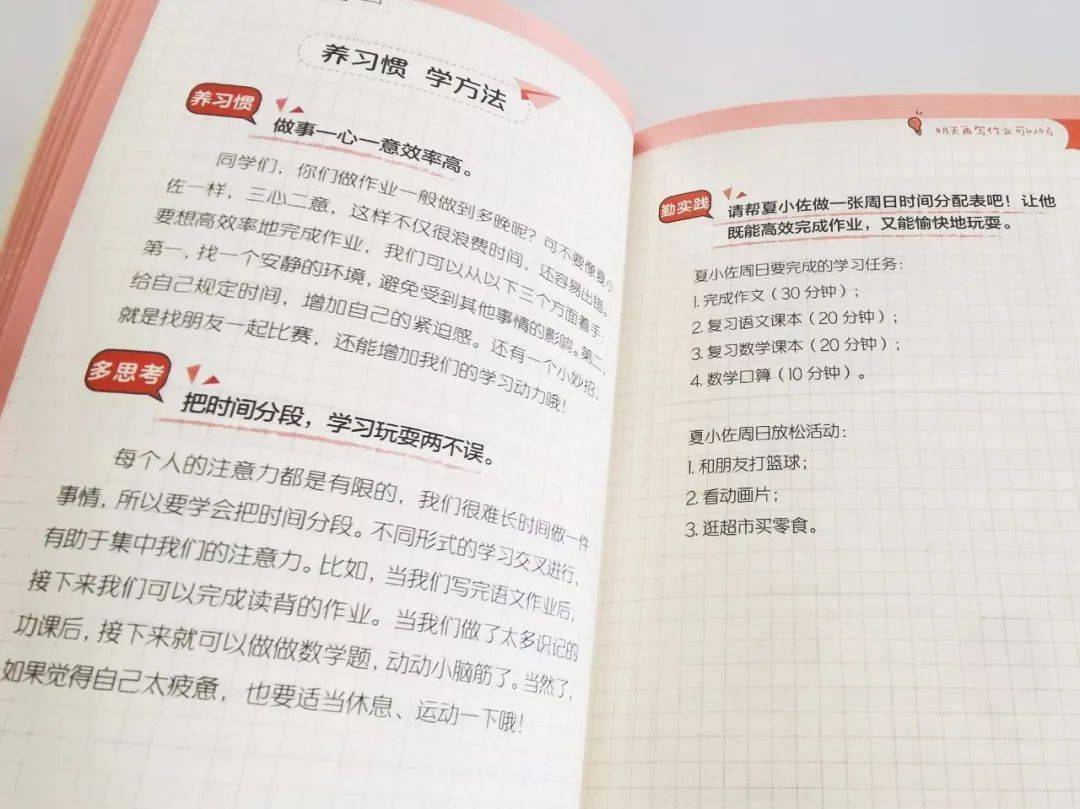 养习惯 学方法
养习惯
做事一心一意效率高。
同学们，你们做作业一般做到多晚呢？可不要像夏小
佐一样，三心二意，这样不仅很浪费时间，还容易出错。
要想高效率地完成作业，我们可以从以下三个方面着手：
第一，找一个安静的环境，避免受到其他事情的影响。第二，
给自己规定时间，增加自己的紧迫感。还有一个小妙招，
就是找朋友一起比赛，还能增加我们的学习动力哦！
多思考
把时间分段，学习玩耍两不误。
每个人的注意力都是有限的，我们很难长时间做一件
事情，所以要学会把时间分段。不同形式的学习交叉进行，
有助于集中我们的注意力。比如，当我们写完语文作业后，
接下来我们可以完成读背的作业。当我们做了太多识记的
功课后，接下来就可以做做数学题，动动小脑筋了。当然了，
如果觉得自己太疲惫，也要适当休息、运动一下哦！
明天再写作业可以吗
勤实践
请帮夏小佐做一张周日时间分配表吧！让他
既能高效完成作业，又能愉快地玩耍。
夏小佐周日要完成的学习任务：
1. 完成作文（30 分钟）；
2. 复习语文课本（20 分钟）；
3. 复习数学课本（20 分钟）；
4. 数学口算（10 分钟）。
夏小佐周日放松活动：
1. 和朋友打篮球；
2. 看动画片；
3. 逛超市买零食。